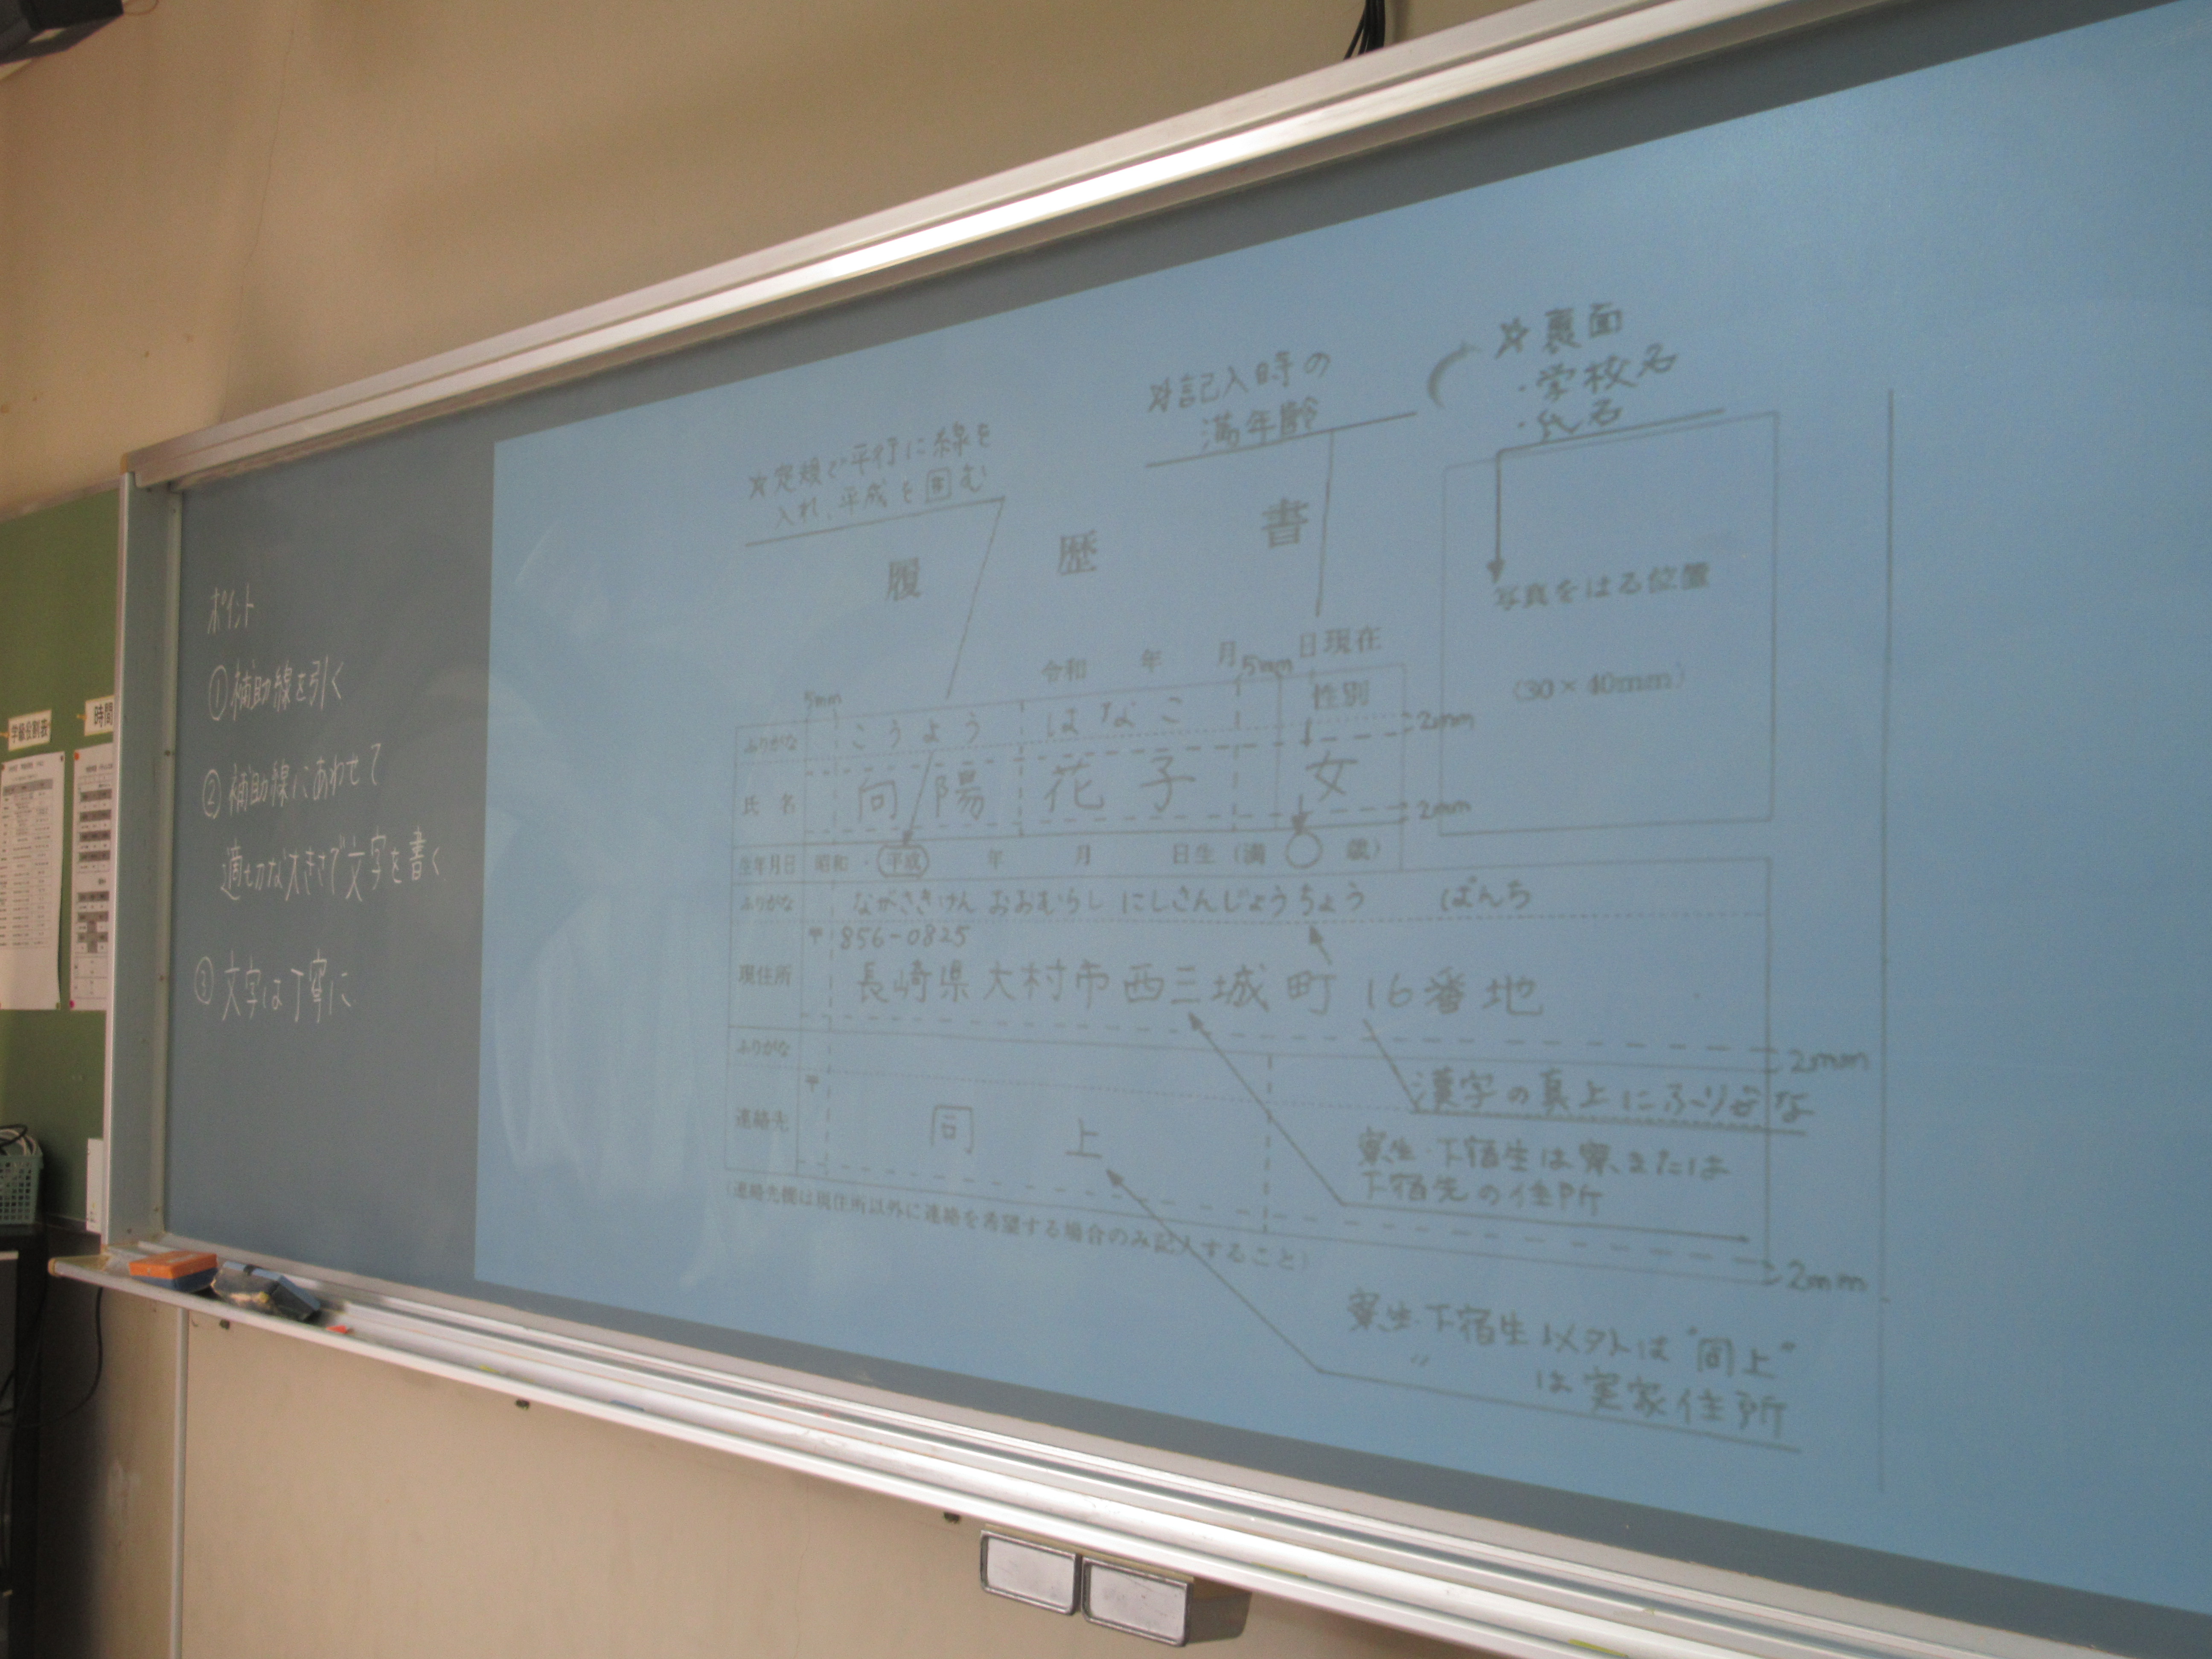 学級役割表
時間
ポイント
①補助線を引く
②補助線にあわせて
適切な大きさで文字を書く
③文字は丁寧に
☆定規で平行に線を
入れ、平成を囲む
☆記入時の
満年齢
☆裏面
・学校名
・氏名
履歴書
写真をはる位置
(30×40mm)
令和 年 月 日現在
5mm
5mm
ふりがな こうよう はなこ 性別
2mm
氏名 向陽 花子 女
2mm
生年月日 昭和・平成 年 月 日生(満 歳)
ふりがな ながさきけん おおむらし にしさんじょうちょう ばんち
〒856-0825
現住所 長崎県大村市西三城町16番地
2mm
ふりがな
漢字の真上にふりがな
〒
連絡先 同上
寮生・下宿生は寮、または
下宿先の住所
2mm
(連絡先欄は現住所以外に連絡を希望する場合のみ記入すること)
寮生・下宿生以外は"同上"
〃 は実家住所